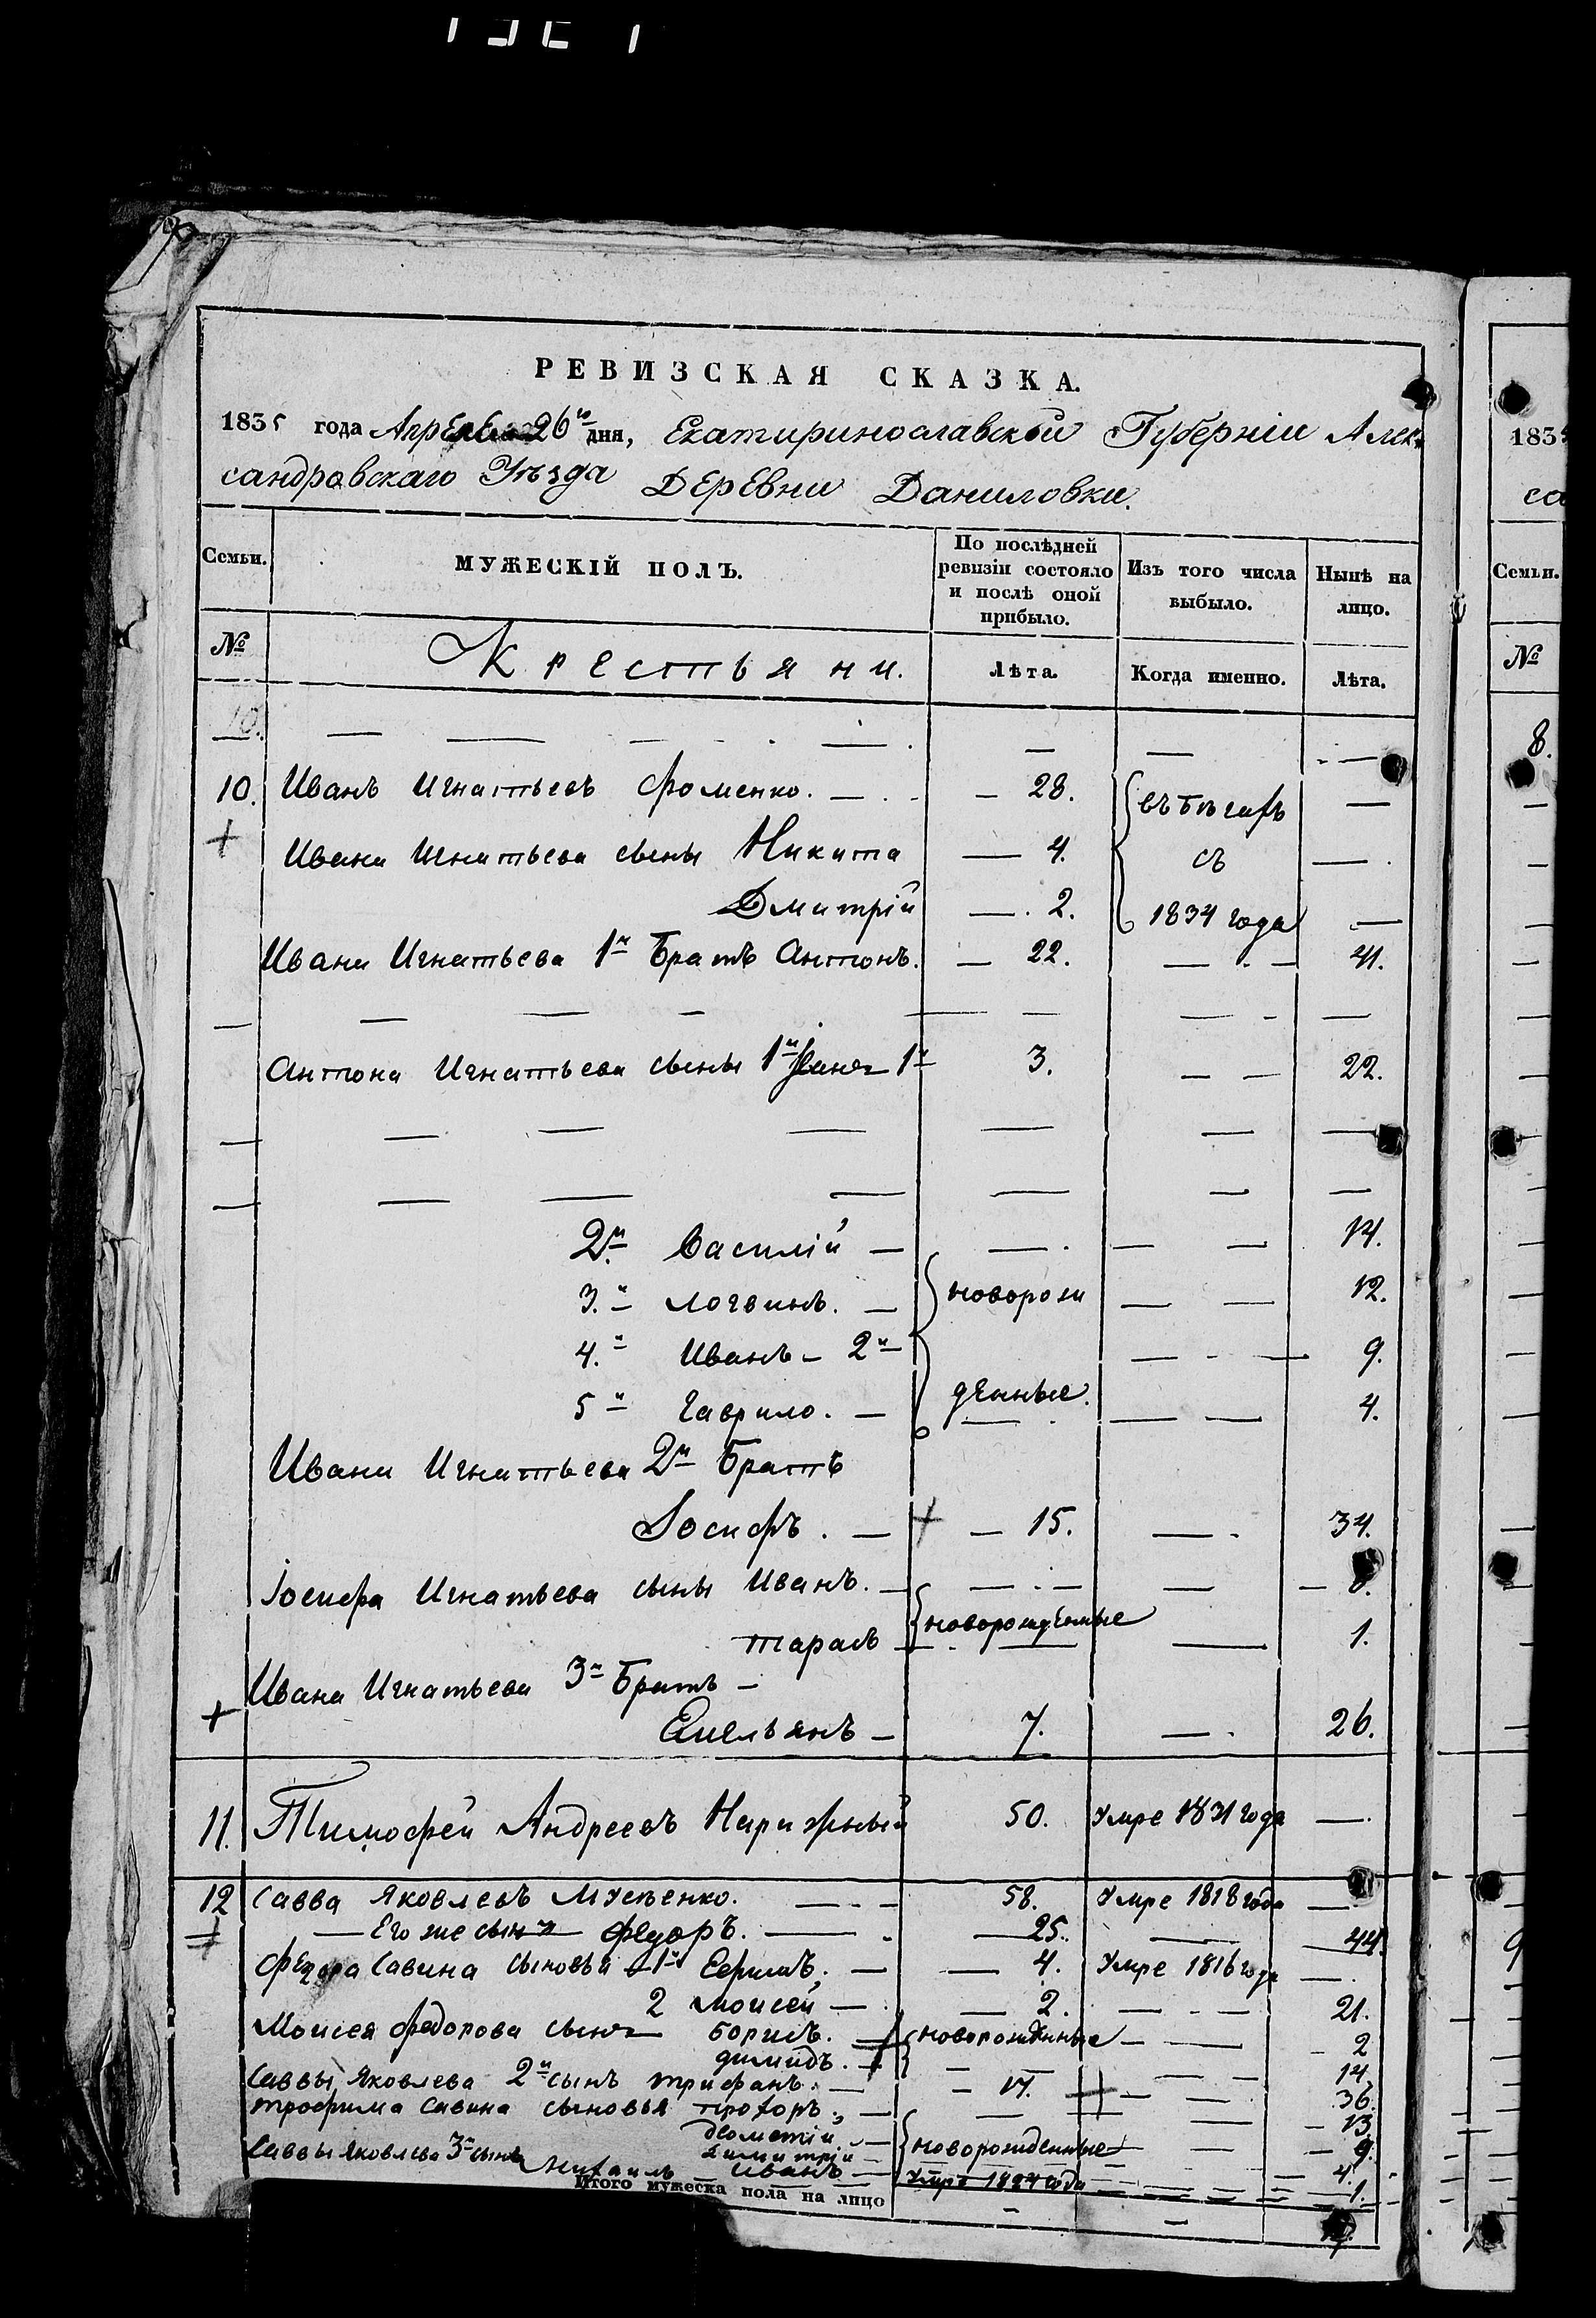 РЕВИЗСКАЯ СКАЗКА.
1835 года Апреля 26го дня, Екатиринославской Губерніи Алек-
сандровскаго Уѣзда Деревни Даниловки.
Семьи. МУЖЕСКІЙ ПОЛЪ. По послѣдней ревизіи состояло и послѣ оной прибыло. Изъ того числа выбыло. Нынѣ на лицо.
№ Крестьяни. Лѣта. Когда именно. Лѣта.
10.
10. Иванъ Игнатьевъ Фоменко. 28. въ бѣгахъ
Ивана Игнатьева сыны Никита 4. съ
Дмитрій 2. 1834 года
Ивана Игнатьева 1й Братъ Антонъ. 22. 41.
Антона Игнатьева сыны 1й Иванъ 1й 3. 22.
2й Василій 14.
3.й Логвинъ. новорож 12.
4.й Иванъ 2й 9.
5й Гаврило. денные. 4.
Ивана Игнатьева 2й Братъ
Іосифъ. 15. 34.
Іосифа Игнатьева сыны Иванъ.
Тарасъ новорожденные 1.
Ивана Игнатьева 3й Братъ
Емельянъ 7. 26.
11. Тимофей Андреевъ Нарижный 50. Умре 1831 года
12 Савва Яковлевъ 58. Умре 1818 года
Его же сын Федоръ. 25. 44.
Федора Савина сыновья 1й Ефимъ. 4. Умре 1816 года
2 Моисей 2. 21.
Моисея Федорова сыны Борисъ. новорожденные 2
14.
Саввы Яковлева 2й сынъ 17. 36.
Трофима Савина сыновья Прохоръ 13
новорожденные 9.
Саввы Яковлева 3й сынъ Димитрій 4.
Михаилъ Иванъ Умре года 1.
Итого мужеска пола на лицо
1835
са
Семьи.
№
8.
9